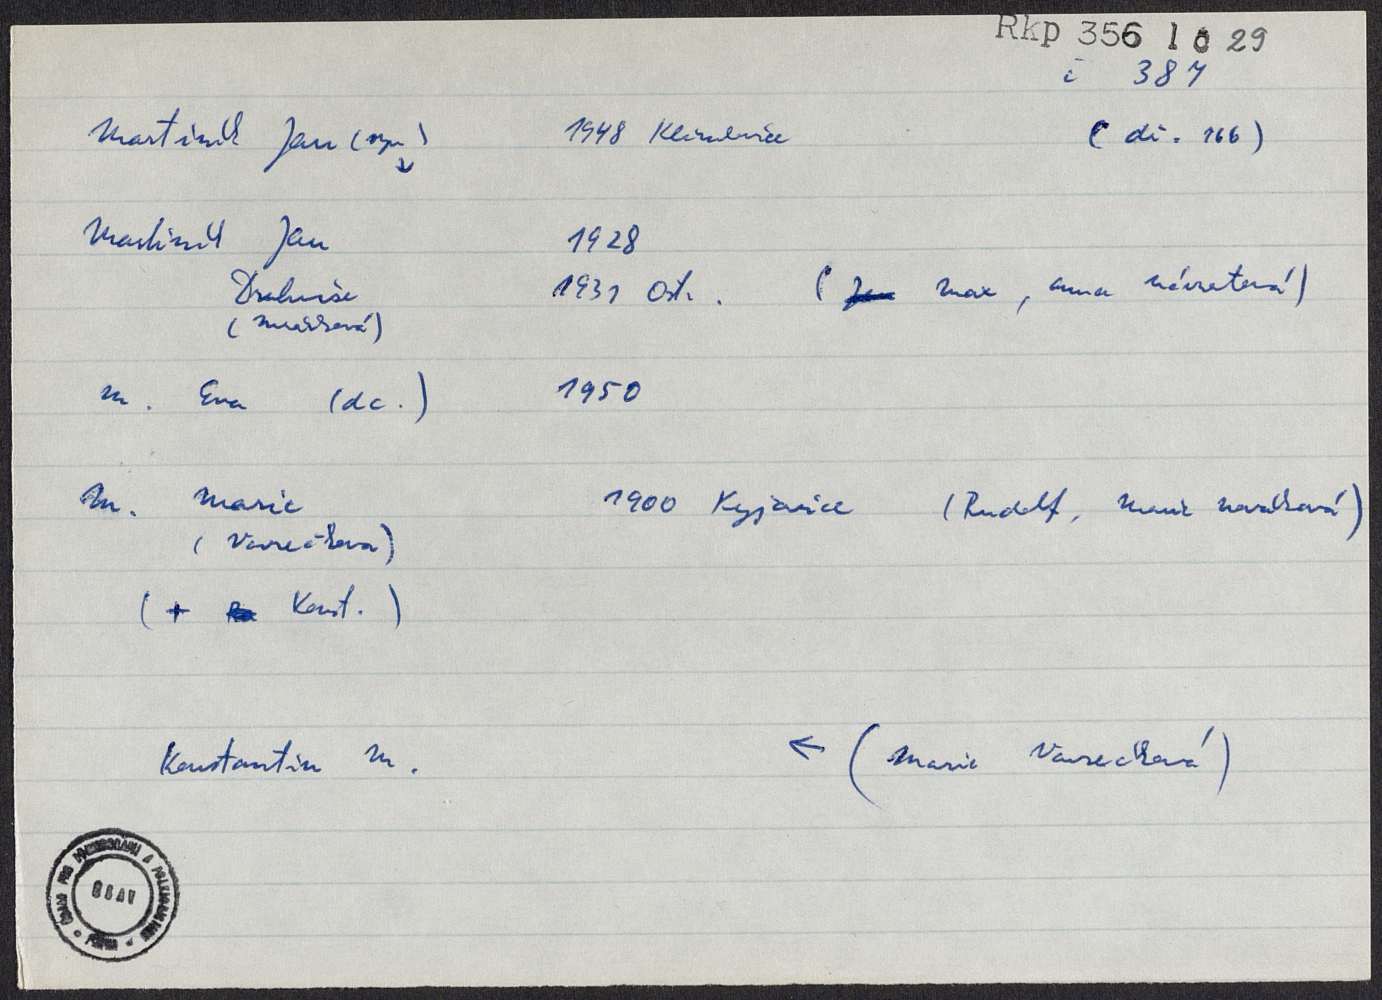 Rkp 356 10 29
i 387
Martiník Jan (syn) 1948 Klimkovice (či. 166)
Martiník Jan 1928
Drahuše 1931 Ostr. (Max, Anna Návratová)
(Muašková)
M. Eva (dc.) 1950
M. Marie 1900 Kyjovice (Rudolf, Marie Nováková)
(Vavrečková)
(+ Konst.)
Konstantin M. ← (Marie Vavrečková)